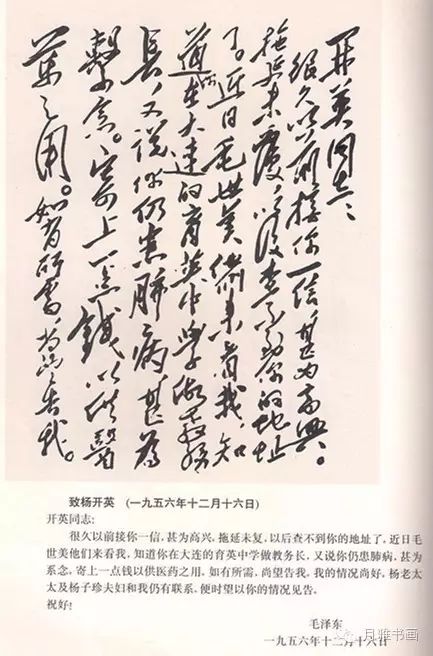 开英同志：
很久以前接你一信，甚为高兴。
拖延未覆，以后查不到你的地址
了。近日毛世美来看我，知
道你在大连的育英中学做教務
長，又说你仍患肺病，甚為
繫念。寄上一点錢以供醫
藥之用。如有所需，尚望告我。
致杨开英 （一九五六年十二月十六日）
开英同志：
很久以前接你一信，甚为高兴，拖延未复，以后查不到你的地址了，近日毛
世美他们来看我，知道你在大连的育英中学做教务长，又说你仍患肺病，甚为
系念，寄上一点钱以供医药之用，如有所需，尚望告我，我的情况尚好，杨老太
太及杨子珍夫妇和我仍有联系，便时望以你的情况见告。
祝好！
毛泽东
一九五六年十二月十六日
月雅书画